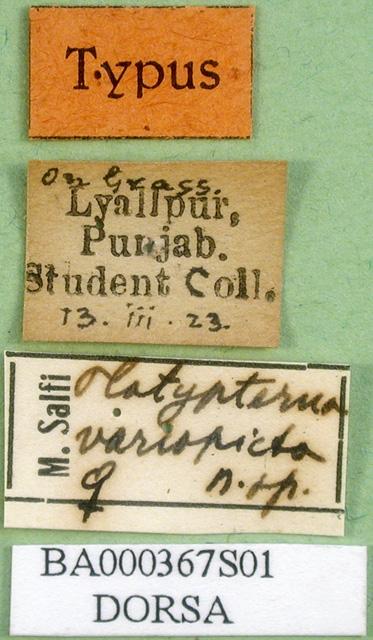 Typus
On Grass.
Lyallpur,
Punjab.
Student Coll.
13. iii. 23.
M. Salfi
Platypterna
variopicta
♀ n. sp.
BA000367S01
DORSA